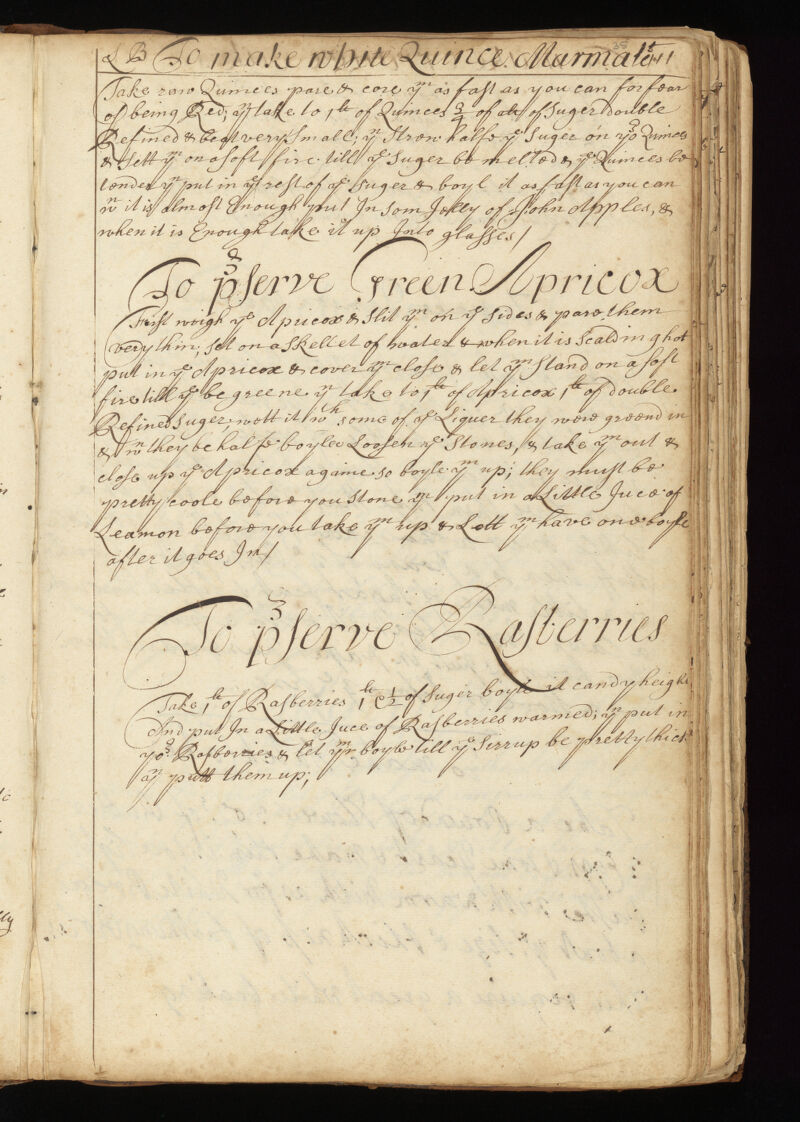 L B To make white Quince Marmalett
Take raw Quinces pare & core ym as fast as you can for fear
of being Red; yn take to 1th of Quinces 3/4 of of Suger double
Refined & beat very Small; yn Strew halfe ye Suger on yor Quinces
& Sett ym on a soft fire till ye Suger be melted & ye Quinces be
tender yn put in ye rest of ye Suger & boyl it as fast as you can
wn it is almost Enough put In som Jelly of John Apples, &
when it is Enough take it up Into glasses/
To pserve Green Apricox
First weigh ye Apricox & Slit ym on ye Sides & pare them
very thin, Set on a Skellet of water & when it is Scalding hot
put in ye Apricox & cover ym close & let ym Stand on a soft
fire till ye be greene yn take to 1th of Apricox 1th of double
Refined Suger wett it wth some of ye Liquer they were greend in
& wn they be halfe boyled Loosen ye Stones, & take ym out &
close up ye Apricox againe so boyle ym up; they must be
pretty coole before you stone ym put in a Little Juce of
Leamon before you take ym up & Lett ym have one boyle
after it goes In/
To pserve Rasberries
Take 1th of Rasberries 1th & 1/2 of Suger boyle it candy height
And put In a Little Juce of Rasberries warmed; yn put in
yor Rasberries & let ym boyle till ye Sirrup be pretty thick
yn putt them up;